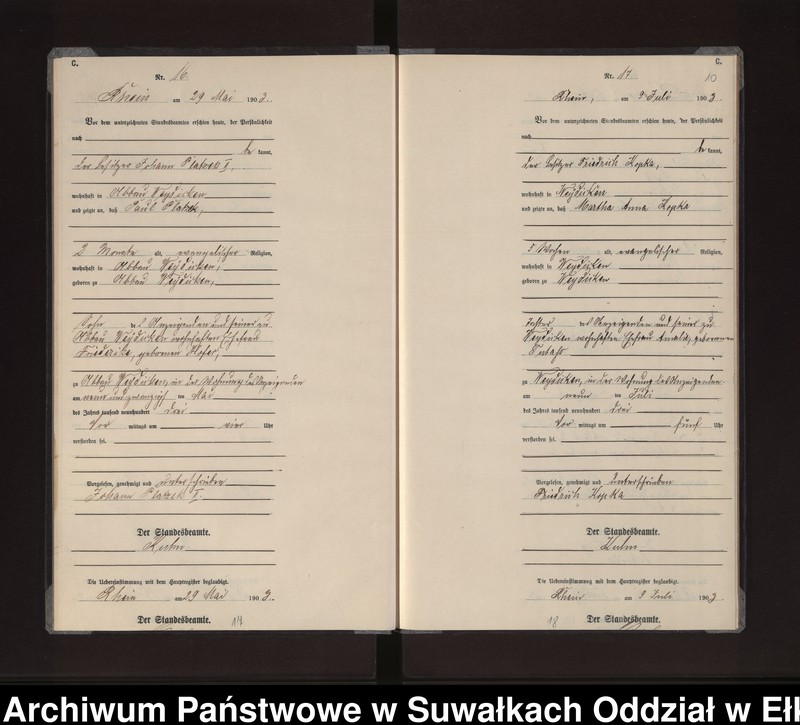 C.
Nr. 16.
Rhein am 29 Mai 1903.
Vor dem unterzeichneten Standesbeamten erschien heute, der Persönlichkeit
nach
be kannt,
der Besitzer Johann
wohnhaft in Abbau Weydicken
und zeigte an, daß Paul
2 Monate alt, evangelischer Religion,
wohnhaft in Abbau Weydicken,
geboren zu Abbau Weydicken,
Sohn des Anzeigenden und seiner zu
Abbau Weydicken wohnhaften Ehefrau
Friederike, geborenen
zu Abbau Weydicken, in der Wohnung des Anzeigenden
am neun und zwanzigsten Mai
des Jahres tausend neunhundert drei
Vor mittags um vier Uhr
verstorben sei.
Vorgelesen, genehmigt und unterschrieben
Johann
Der Standesbeamte.
Die Uebereinstimmung mit dem Hauptregister beglaubigt.
Rhein am 29 Mai 1903.
Der Standesbeamte.
17
C.
Nr. 17.
10
Rhein, am 9 Juli 1903.
Vor dem unterzeichneten Standesbeamten erschien heute, der Persönlichkeit
nach
be kannt,
der Besitzer Friedrich Kopka,
wohnhaft in Weydicken
und zeigte an, daß Martha Anna Kopka
5 Wochen alt, evangelischer Religion,
wohnhaft in Weydicken
geboren zu Weydicken
Tochter des Anzeigenden und seiner zu
Weydicken wohnhaften Ehefrau Amalie, geborenen
zu Weydicken, in der Wohnung des Anzeigenden
am neun ten Juli
des Jahres tausend neunhundert drei
Vor mittags um fünf Uhr
verstorben sei.
Vorgelesen, genehmigt und unterschrieben
Friedrich Kopka
Der Standesbeamte.
Die Uebereinstimmung mit dem Hauptregister beglaubigt.
Rhein am 9 Juli 1903
Der Standesbeamte.
18
Archiwum Państwowe w Suwałkach Oddział w Eł